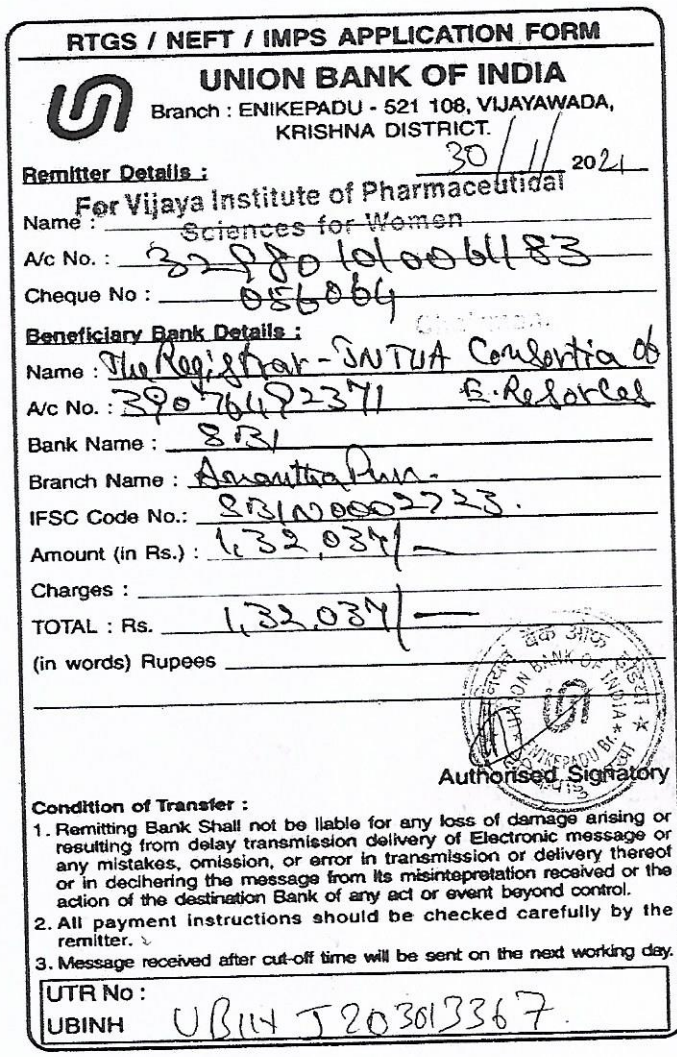 RTGS / NEFT / IMPS APPLICATION FORM
UNION BANK OF INDIA
Branch : ENIKEPADU - 521 108, VIJAYAWADA,
KRISHNA DISTRICT.
30/11/2021
Remitter Details :
For Vijaya Institute of Pharmaceutical
Name :
Sciences for Women
A/c No. : 329801010064183
Cheque No : 056064
Chairman.
Beneficiary Bank Details :
Name : The Registrar - JNTUA Consortia of
A/c No. : 39076492371 E. Resorces
Bank Name : SBI
Branch Name : Ananthapur.
IFSC Code No.: SBIN0002723.
Amount (in Rs.) : 1,32,037/-
Charges :
TOTAL : Rs. 1,32,037/-
(in words) Rupees
यूनियन बैंक ऑफ इंडिया
UNION BANK OF INDIA
ENIKEPADU Br.
Authorised Signatory
Condition of Transfer :
1. Remitting Bank Shall not be liable for any loss of damage arising or
resulting from delay transmission delivery of Electronic message or
any mistakes, omission, or error in transmission or delivery thereof
or in decihering the message from its misintepretation received or the
action of the destination Bank of any act or event beyond control.
2. All payment instructions should be checked carefully by the
remitter.
3. Message received after cut-off time will be sent on the next working day.
UTR No :
UBINH UBINJ203013367.